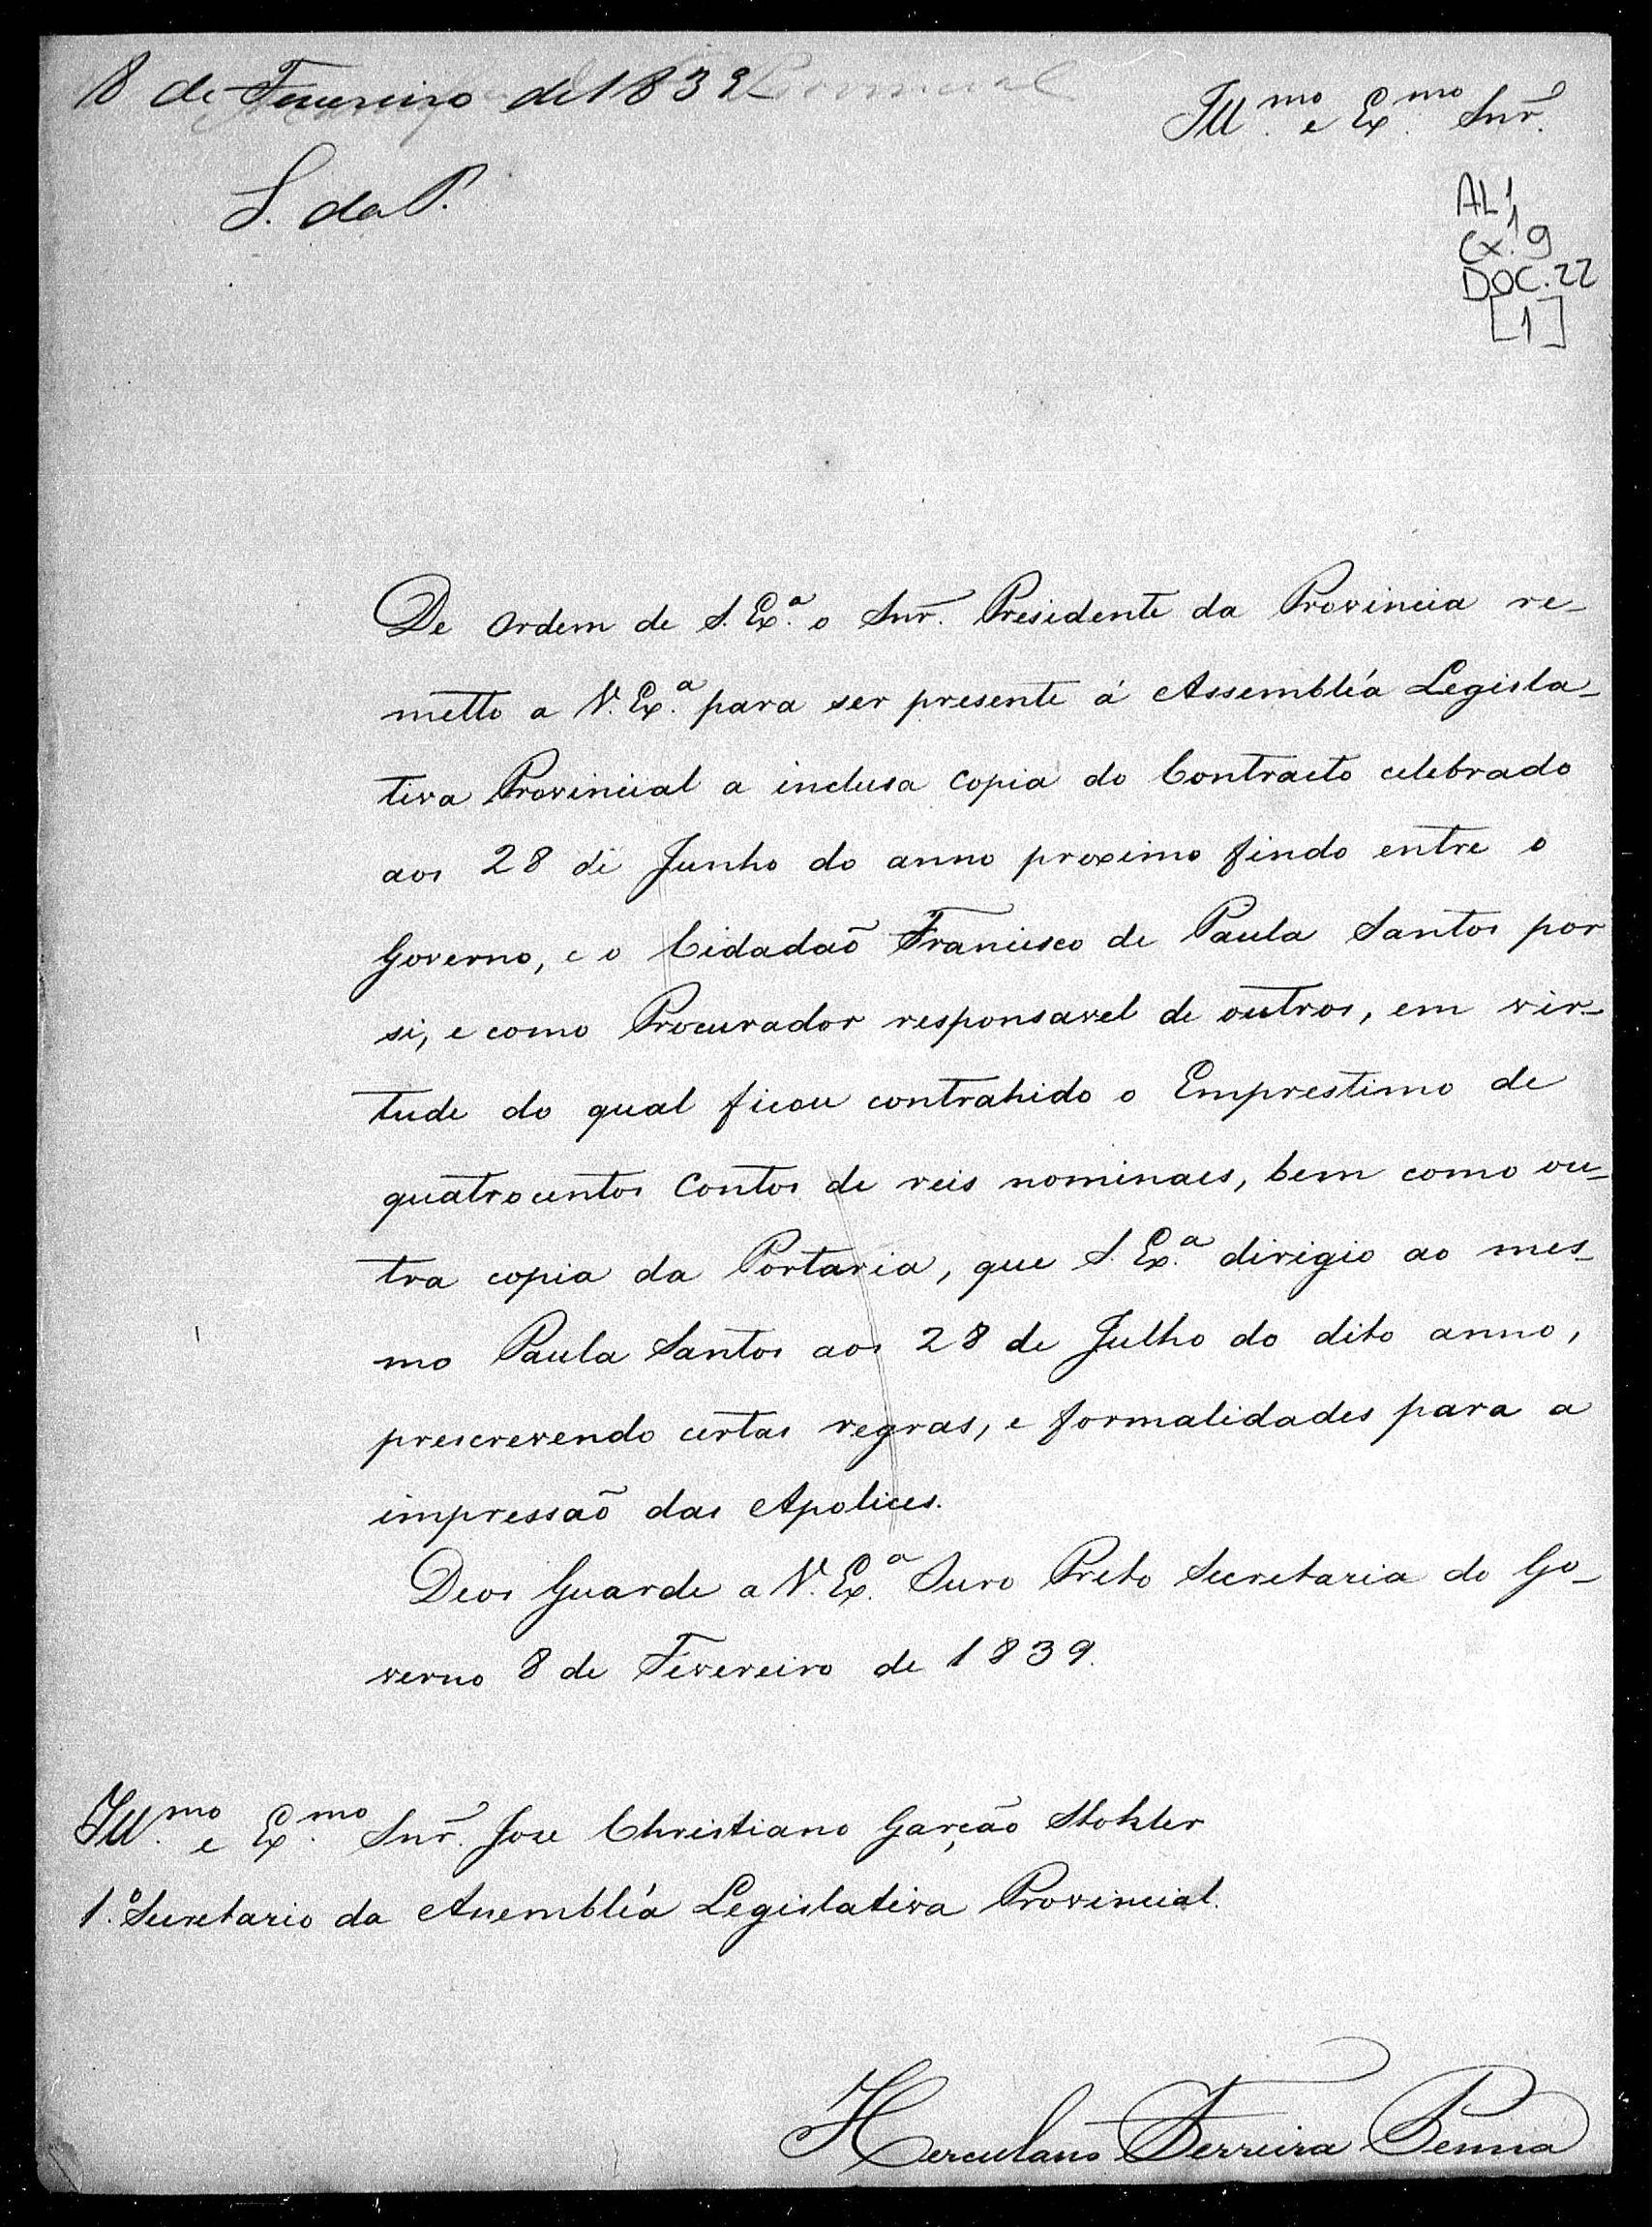 8 de Fevereiro de 1839
Ill.mo e Ex.mo Snr.
S. da P.
AL 1,1
CX. 9
DOC. 22
[1]
De ordem de S. Ex.a o Snr. Presidente da Provincia re-
metto a V. Ex.a para ser presente á Assembléa Legisla-
tiva Provincial a inclusa copia do Contracto celebrado
aos 28 de Junho do anno proximo findo entre o
Governo, e o Cidadaõ Francisco de Paula Santos por
si, e como Procurador responsavel de outros, em vir-
tude do qual ficou contrahido o Emprestimo de
quatrocentos Contos de reis nominaes, bem como ou-
tra copia da Portaria, que S. Ex.a dirigio ao mes-
mo Paula Santos aos 28 de Julho do dito anno,
prescrevendo certas regras, e formalidades para a
impressaõ das Apolices.
Deos Guarde a V. Ex.a Ouro Preto Secretaria do Go-
verno 8 de Fevereiro de 1839.
Ill.mo e Ex.mo Snr. Jose Christiano Garção Stokler
1.o Secretario da Assembléa Legislativa Provincial.
Herculano Ferreira Penna